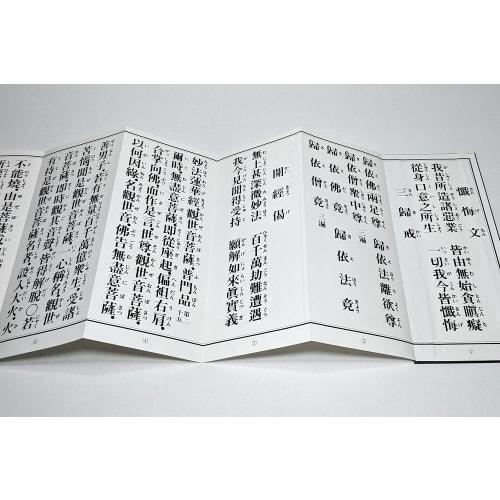 懺悔文
我昔所造諸惡業　皆由無始貪瞋癡
從身口意之所生　一切我今皆懺悔
三歸戒
歸依佛兩足尊　歸依法離欲尊
歸依僧衆中尊　歸依佛竟
歸依法竟
歸依僧竟 三遍
開經偈
無上甚深微妙法　百千萬劫難遭遇
我今見聞得受持　願解如來眞實義
妙法蓮華經觀世音菩薩普門品第二十五
爾時無盡意菩薩。即從座起。偏袒右肩。
合掌向佛。而作是言。世尊。觀世音菩薩。
以何因緣。名觀世音。佛告無盡意菩薩。
善男子。若有無量百千萬億衆生。受諸
苦惱。聞是觀世音菩薩。一心稱名。觀世
音菩薩。即時觀其音聲。皆得解脫。○若
有持是觀世音菩薩名者。設入大火。火
不能燒。由是菩薩